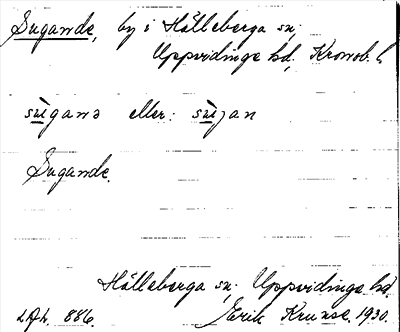 Sugande, by i Hälleberga sn;
Uppvidinge hd, Kronob. l
sùganə eller: sùgan
Sugande.
Hälleberga sn; Uppvidinge hd.
886. Erik Kruuse. 1930.